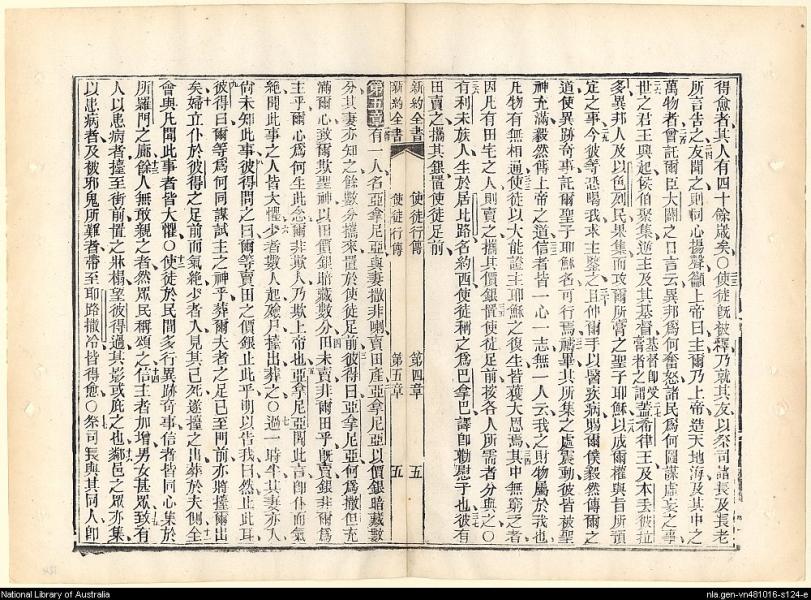 得愈者其人有四十餘歲矣○使徒旣被釋乃就其友以祭司諸長及長老
所言告之友聞之則同心揚聲籲上帝曰主爾乃上帝造天地海及其中之
萬物者曾託爾臣大闢之口言云異邦爲何奮怒諸民爲何圖謀虛妄之事
世之君王興起侯伯聚集逆主及其基督基督卽受膏者之謂蓋希律王及本丟彼拉
多異邦人及以色列民果集而攻爾所膏之聖子耶穌以成爾權與旨所預
定之事今彼等恐喝我求主鑒之且伸爾手以醫疾病賜爾僕毅然傳爾之
道使異跡奇事託爾聖子耶穌名可行焉禱畢其所集之處震動彼皆被聖
神充滿毅然傳上帝之道信者皆一心一志無一人云我之財物屬於我也
凡物有無相通使徒以大能證主耶穌之復生皆獲大恩焉其中無窮乏者
因凡有田宅之人則賣之攜其價銀置使徒足前按各人所需者分與之○
有利未族人生於居比路名約西使徒稱之爲巴拿巴譯卽勸慰子也彼有
田賣之攜其銀置使徒足前
新約全書 使徒行傳 第四章 五
新約全書 使徒行傳 第五章 五
第五章 有一人名亞拿尼亞與妻撒非喇賣田產亞拿尼亞以價銀暗藏數
分其妻亦知之餘數分攜來置於使徒足前彼得曰亞拿尼亞何爲撒但充
滿爾心致爾欺聖神以田價銀暗藏數分田未賣非爾田乎旣賣銀非爾爲
主乎爾心爲何生此念爾非欺人乃欺上帝也亞拿尼亞聞此言卽仆而氣
絕聞此事之人皆大懼少者數人起殮尸擡出葬之○過一時半其妻亦入
尙未知此事彼得問之曰爾等賣田之價銀止此乎明以告我曰然止此耳
彼得曰爾等爲何同謀試主之神乎葬爾夫者之足已至門前亦將擡爾出
矣婦立仆於彼得之足前而氣絕少者入見其已死遂擡之出葬於夫側全
會與凡聞此事者皆大懼○使徒於民間多行異跡奇事信者皆同心集於
所羅門之廊餘人無敢親之者然眾民稱頌之信主者加增男女甚眾致有
人以患病者擡至街前置之牀榻望彼得過其影或庇之也鄰邑之眾亦集
以患病者及被邪鬼所難者帶至耶路撒冷皆得愈○祭司長與其同人卽
National Library of Australia
nla.gen-vn481016-s124-e